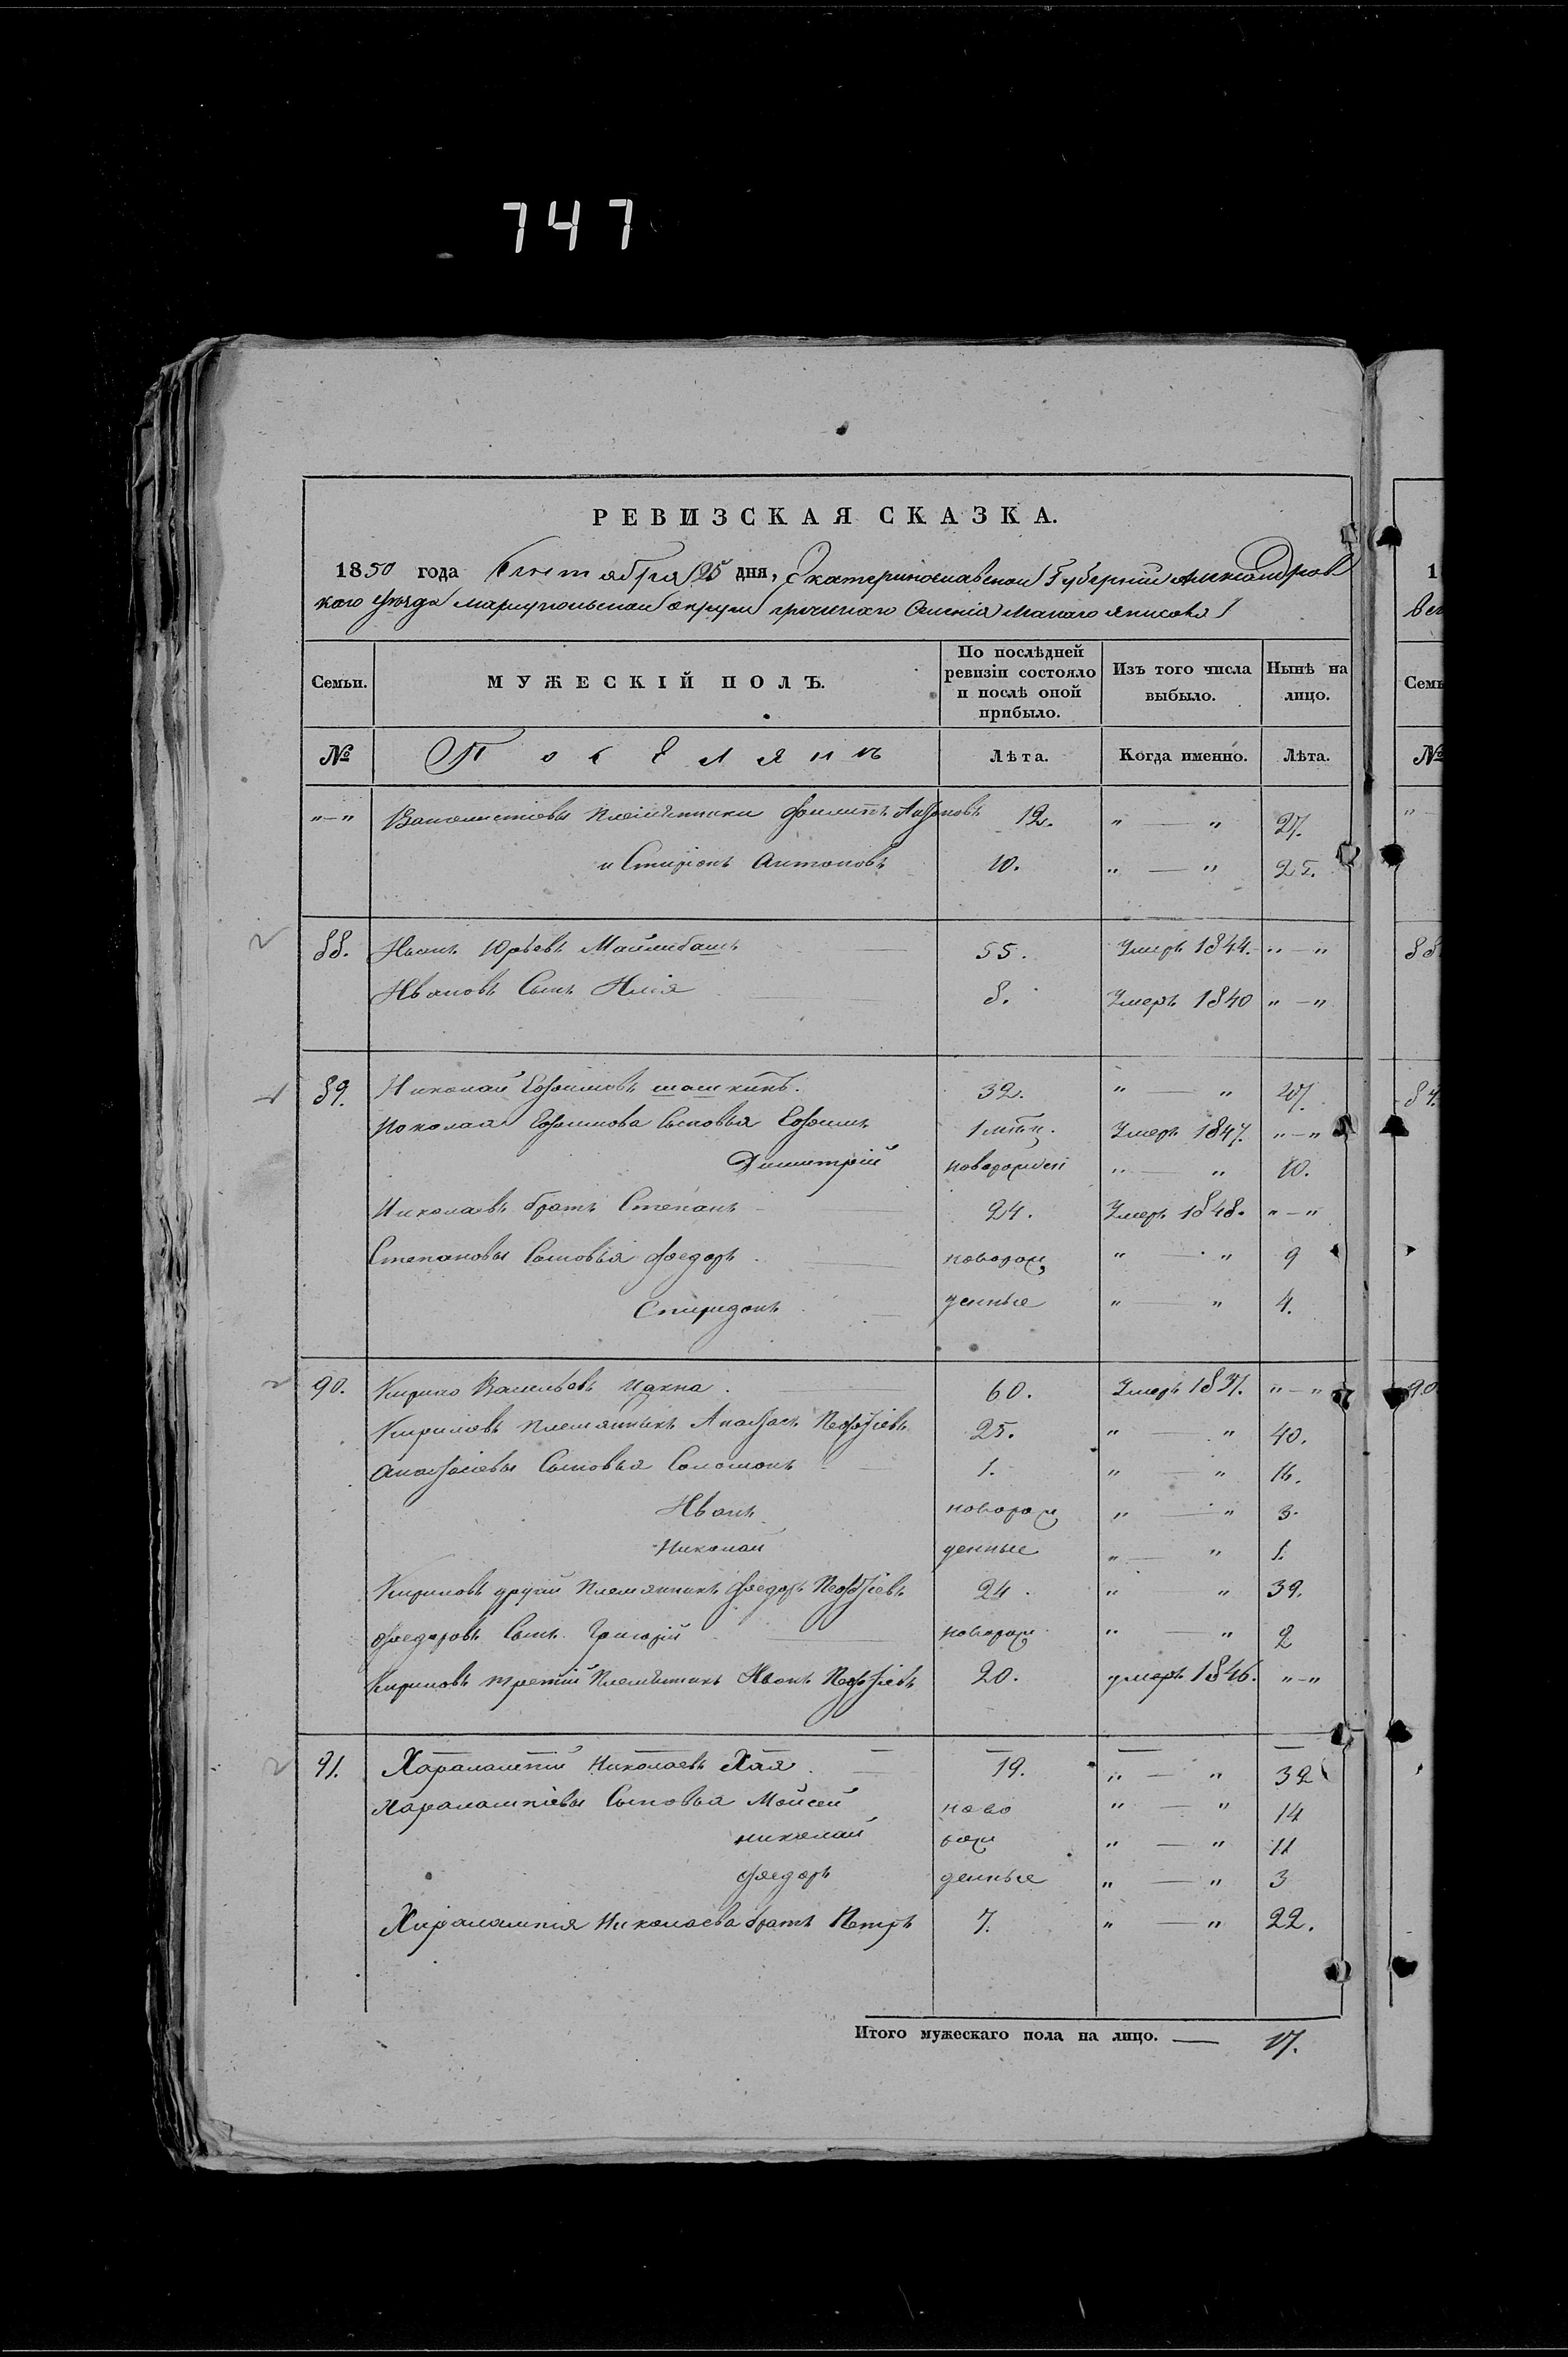 747
РЕВИЗСКАЯ СКАЗКА.
1850 года Сентября 25 дня, Екатеринославской Губернии Александров
каго уезда мариупольской округи греческаго Селенія Малаго янисоля
Семьи. МУЖЕСКІЙ ПОЛЪ. По послѣдней ревизіи состояло и послѣ оной прибыло. Изъ того числа выбыло. Нынѣ на лицо.
№ Поселянъ Лѣта. Когда именно. Лѣта.
"—" племянники Филипъ Антоновъ 12. " — " 27.
и Спиріонъ Антоновъ 10. " — " 25.
88. Иванъ Юрьевъ Майлибашъ 55. Умеръ 1844. "—"
Ивановъ Сынъ Илія 8. Умеръ 1840 "—"
89. Николай Ефимовъ шашкинъ. 32. " — " 47.
Николая Ефимова Сыновья Ефимъ 1 мѣсц. Умеръ 1847. "—"
Димитрій новорожден " — " 10.
Николаевъ братъ Степанъ 24. Умеръ 1848. "—"
Степановы Сыновья Фѣедоръ новорож " — " 9
Спиридонъ денные " — " 4.
90. Кирило Васильевъ Цакна. 60. Умеръ 1837. "—"
Кириловъ племянникъ Анастасъ 25. " — " 40.
Анастасіевы Сыновья Соломонъ 1. " — " 16.
Иванъ новорож " — " 3.
Николай денные " — " 1.
Кириловъ другій племянникъ Фѣедоръ 24. " " 39.
Фѣедоровъ Сынъ Григорій новорож " — " 2
Кириловъ третій племянникъ Иванъ 20. умеръ 1846. "—"
91. Харалампій Николаевъ Хая. 19. " — " 32
Харалампіевы Сыновья Мойсей ново " — " 14
николай рож " — " 11
Фѣедоръ денные " — " 3
Харалампія Николаева братъ Петръ 7. " — " 22.
Итого мужескаго пола на лицо. — 17.
1
Семь
№
"
88
89.
90